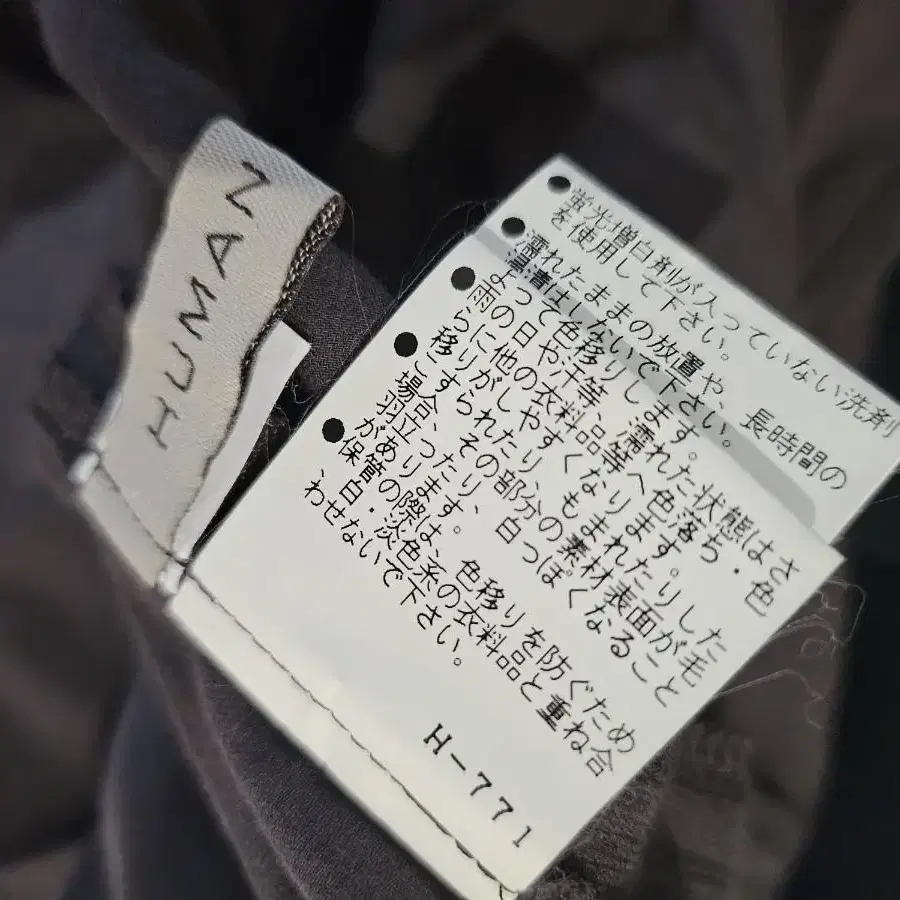 HUMAN
●蛍光増白剤が入っていない洗剤
を使用して下さい。
●濡れたままの放置や、長時間の
しないで下さい。
よって色移りします。
雨の日や汗等、濡れた状態はさ
らに他の衣料品等へ色落ち・色
移りしやすくなります。
こすられたり、もまれたりした
場合、その部分の素材表面が毛
羽立ったり、白っぽくなること
があります。
●保管の際は、色移りを防ぐため
、白・淡色系の衣料品と重ね合
わせないで下さい。
H-771